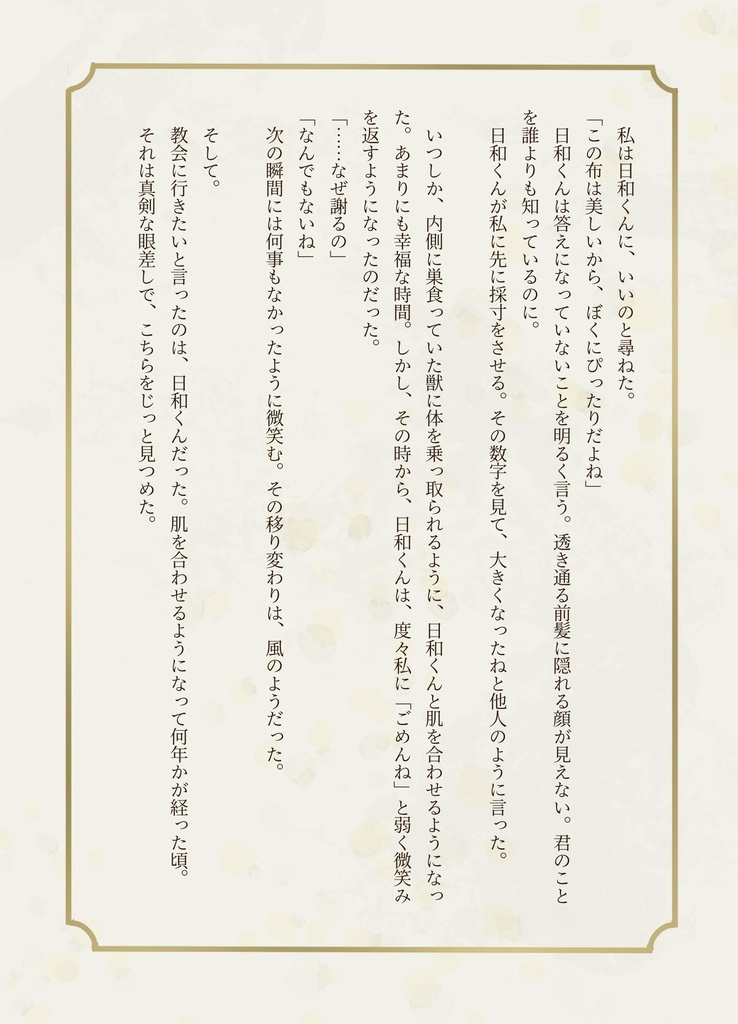 私は日和くんに、いいのと尋ねた。
「この布は美しいから、ぼくにぴったりだよね」
日和くんは答えになっていないことを明るく言う。透き通る前髪に隠れる顔が見えない。君のこと
を誰よりも知っているのに。
日和くんが私に先に採寸をさせる。その数字を見て、大きくなったねと他人のように言った。
いつしか、内側に巣食っていた獣に体を乗っ取られるように、日和くんと肌を合わせるようになっ
た。あまりにも幸福な時間。しかし、その時から、日和くんは、度々私に「ごめんね」と弱く微笑み
を返すようになったのだった。
「……なぜ謝るの」
「なんでもないね」
次の瞬間には何事もなかったように微笑む。その移り変わりは、風のようだった。
そして。
教会に行きたいと言ったのは、日和くんだった。肌を合わせるようになって何年かが経った頃。
それは真剣な眼差しで、こちらをじっと見つめた。